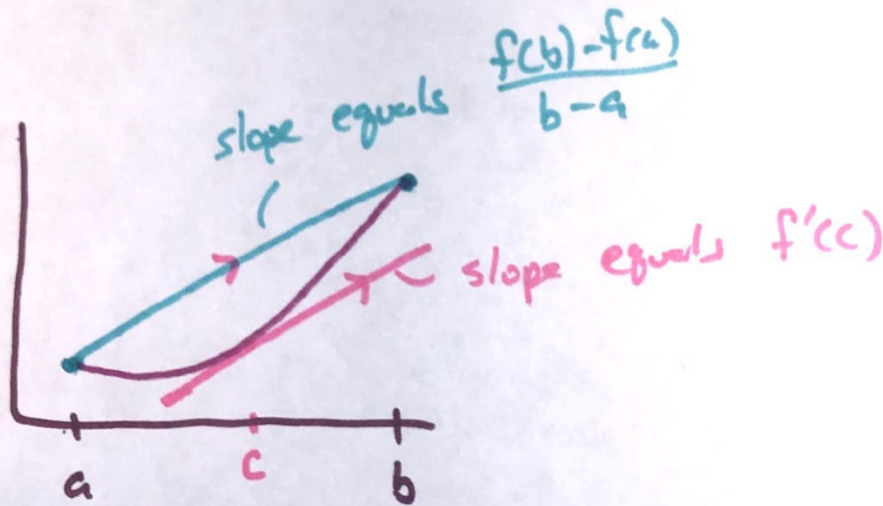 slope equals f(b)-f(a)
b-a
slope equals f'(c)
a c b